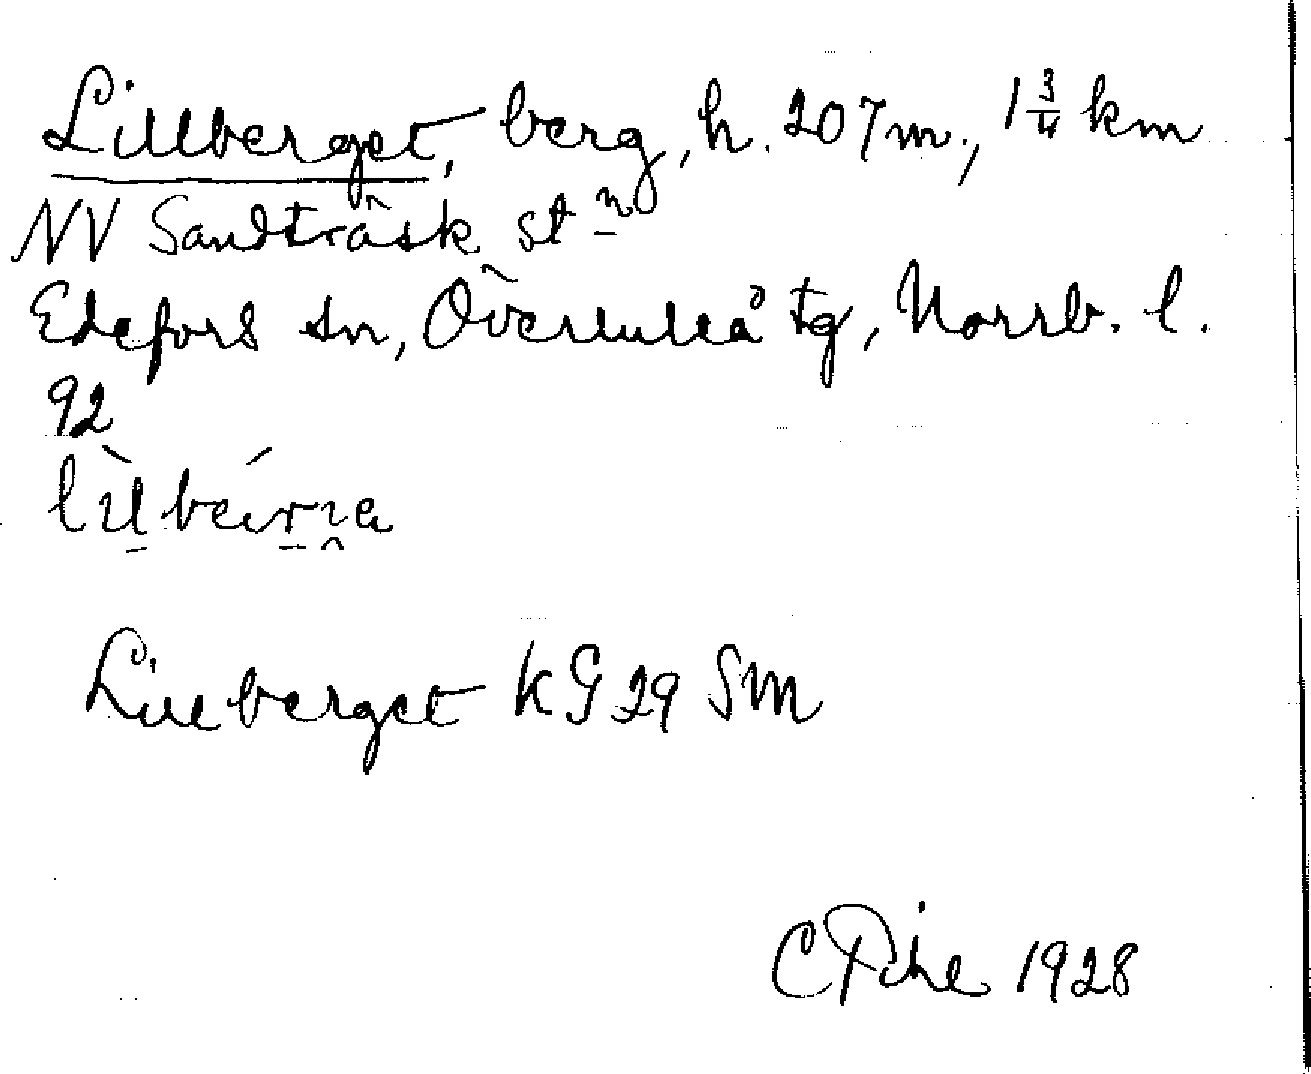 Lillberget, berg, h. 207 m., 1 3/4 km
NV Sandträsk stn
Edefors sn, Överluleå tg, Norrb. l.
92
Lillberget KG 29 SM
C Pihl 1928